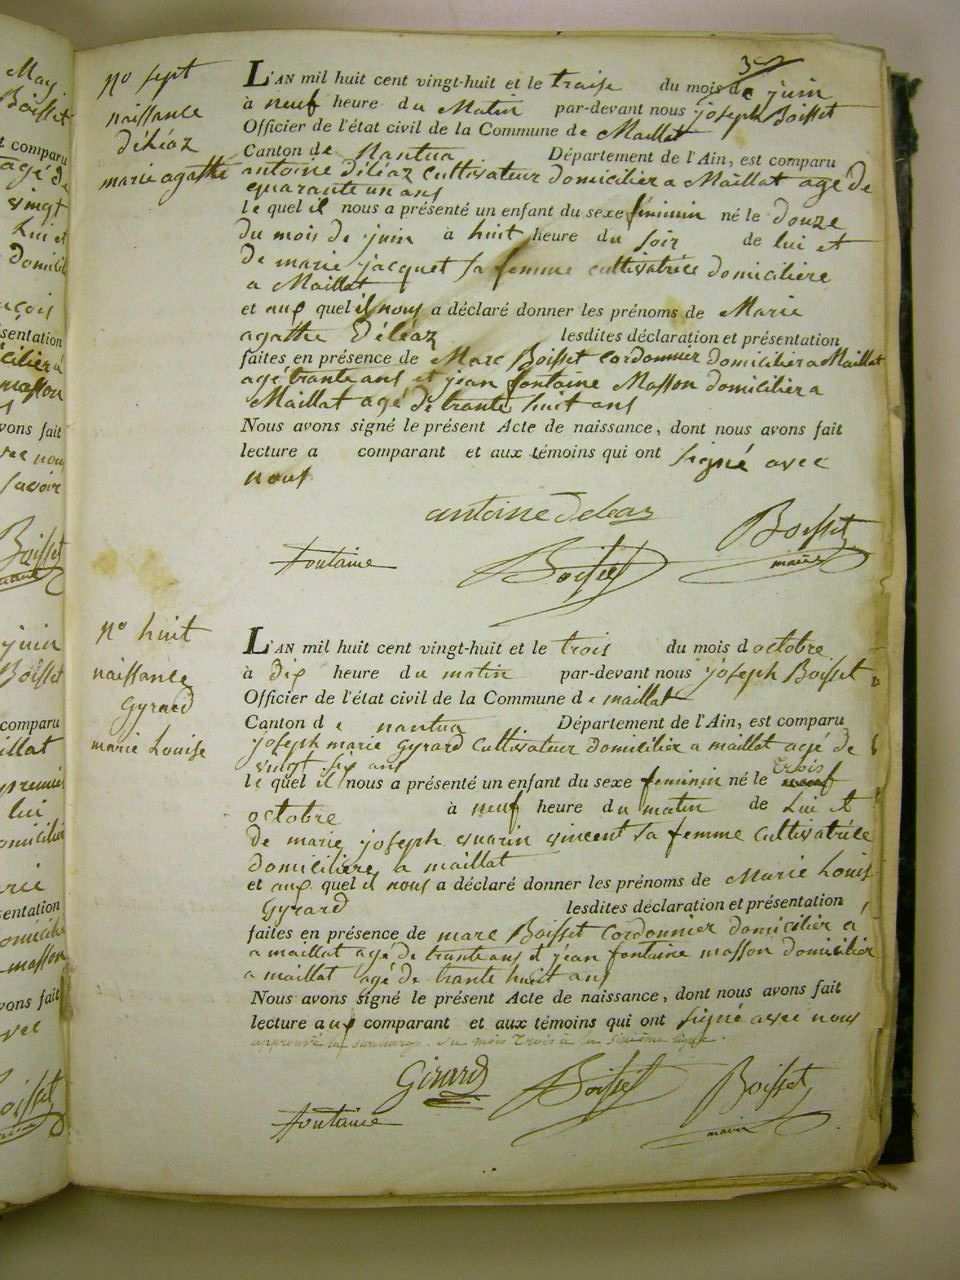 May
Boisset
t comparu
agé de
vingt
Lui et
domicil
nçois
sentation
cilier à
masson
vons fait
vec nou
savoir
Boisset
juin
Boisset
comparu
illat
premier
lui
omicilié
arie
sentation
omicilié
masson
vons fait
avec
Boisset
37
n° sept
naissance
déléaz
marie agathe
L'AN mil huit cent vingt-huit et le traise du mois de juin
à neuf heure du Matin par-devant nous joseph Boisset
Officier de l'état civil de la Commune de Maillat
Canton de Nantua Département de l'Ain, est comparu
antoine déléaz Cultivateur domicilier a Maillat agé de
quarante un ans
le quel il nous a présenté un enfant du sexe féminin né le douze
du mois de juin à huit heure du soir de lui et
de marie jacquet sa femme cultivatrice domiciliere
a Maillat
et aux quel il nous a déclaré donner les prénoms de Marie
agathe Déléaz lesdites déclaration et présentation
faites en présence de Marc Boisset cordonnier domicilier a Maillat
agé trante ans et jean fontaine Masson domicilier a
Maillat agé de trante huit ans
Nous avons signé le présent Acte de naissance, dont nous avons fait
lecture a comparant et aux témoins qui ont signé avec
nous
antoine deleaz
Boisset
fontaine Boisset maire
n° huit
naissance
Gyrard
marie Louise
L'AN mil huit cent vingt-huit et le trois du mois d octobre
à dix heure du matin par-devant nous joseph Boisset
Officier de l'état civil de la Commune d e maillat
Canton d e nantua Département de l'Ain, est comparu
joseph marie Gyrard Cultivateur domicilier a maillat agé de
vingt six ans
le quel il nous a présenté un enfant du sexe feminin né le trois neuf
octobre à neuf heure du matin de Lui et
de marie joseph evarin vincent sa femme cultivatrice
domiciliere a maillat
et aux quel il nous a déclaré donner les prénoms de Marie Louis
Gyrard lesdites déclaration et présentation
faites en présence de marc Boisset cordonnier domicilier a
a maillat agé de trante ans et jean fontaine masson domicilier
a maillat agé de trante huit ans
Nous avons signé le présent Acte de naissance, dont nous avons fait
lecture aux comparant et aux témoins qui ont signé avec nous
approuvé la surcharge du mois trois à la sixième ligne.
Girard Boisset Boisset
fontaine maire